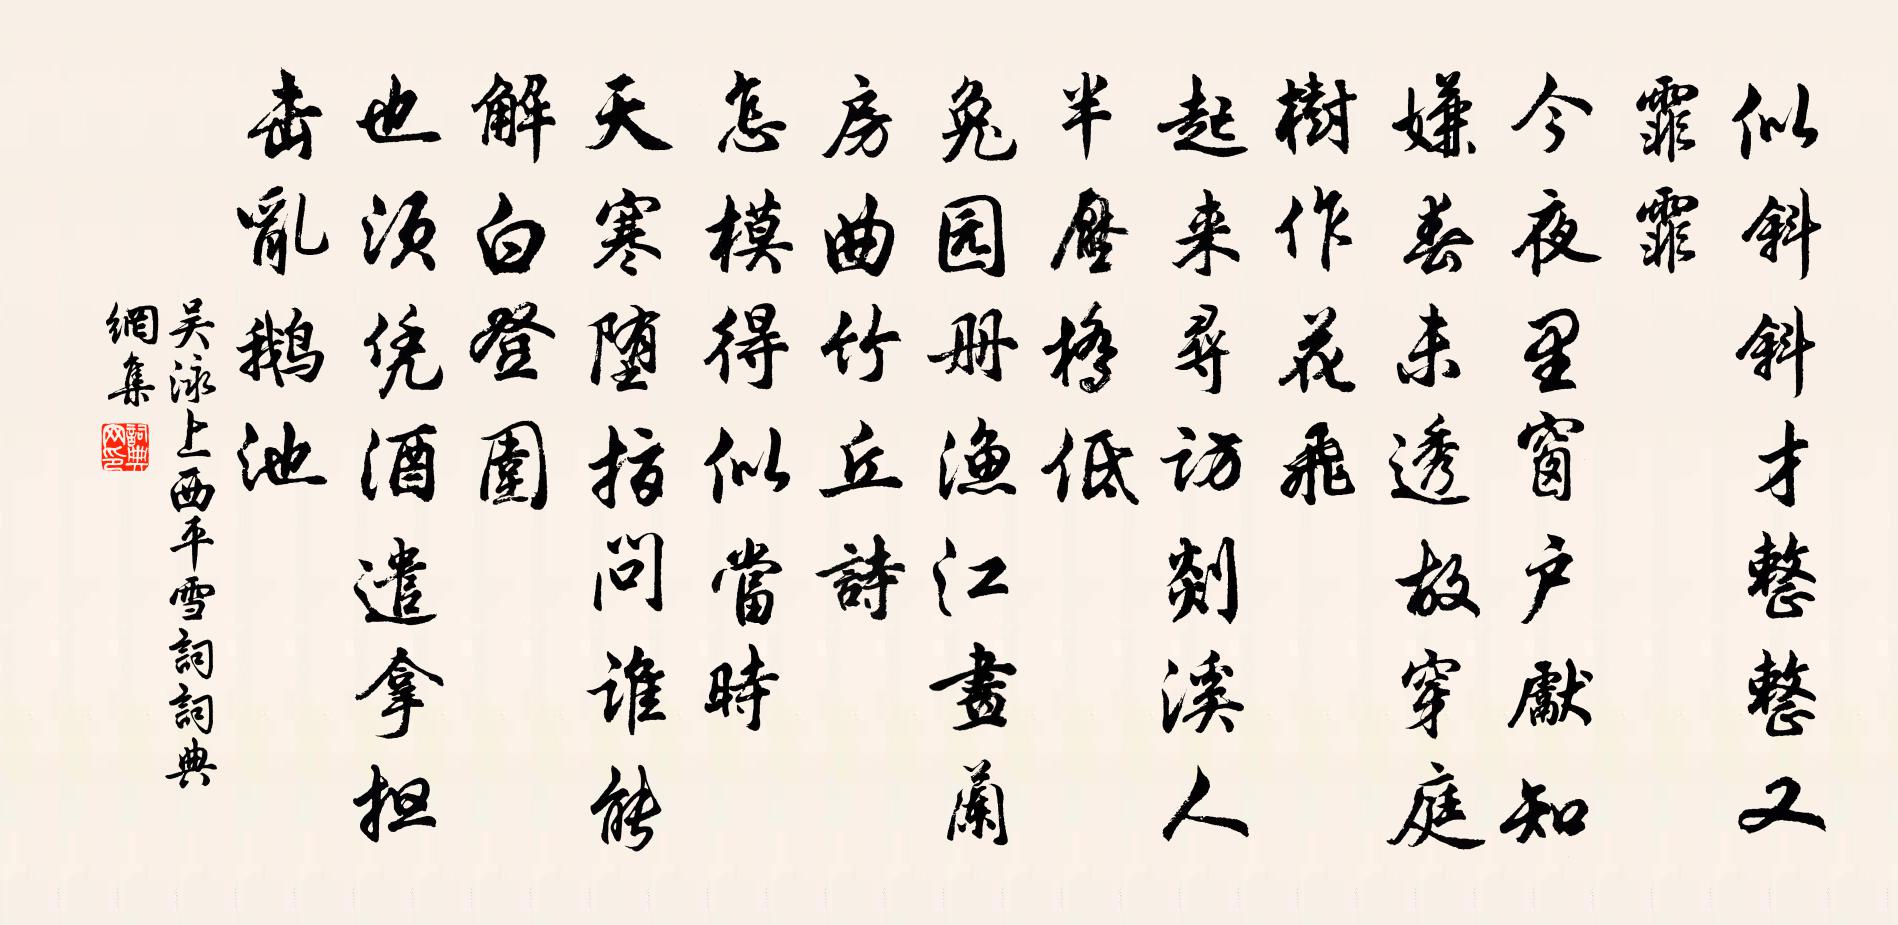 似斜斜才整整又
霏霏
今夜里窗户獻知
嫌春未透故穿庭
樹作花飛
起来尋訪剡溪人
半壓橋低
兔园册漁江畫蘭
房曲竹丘詩
怎模得似當時
天寒堕指问谁能
解白登圍
也须凭酒遣拿担
击亂鹅池
吴泳上西平雪詞詞典
網集
詞典
网印